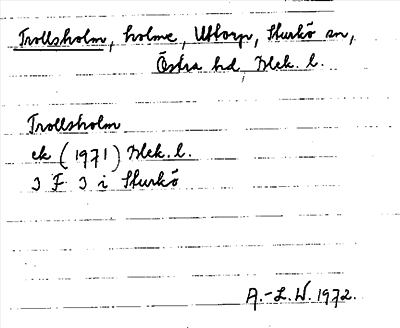 Trollsholm, holme, Uttorp, Sturkö sn,
Östra hd, Blek. l.
Trollsholm
ek (1971) Blek. l.
3 F 3 i Sturkö
A.-L. W. 1972.